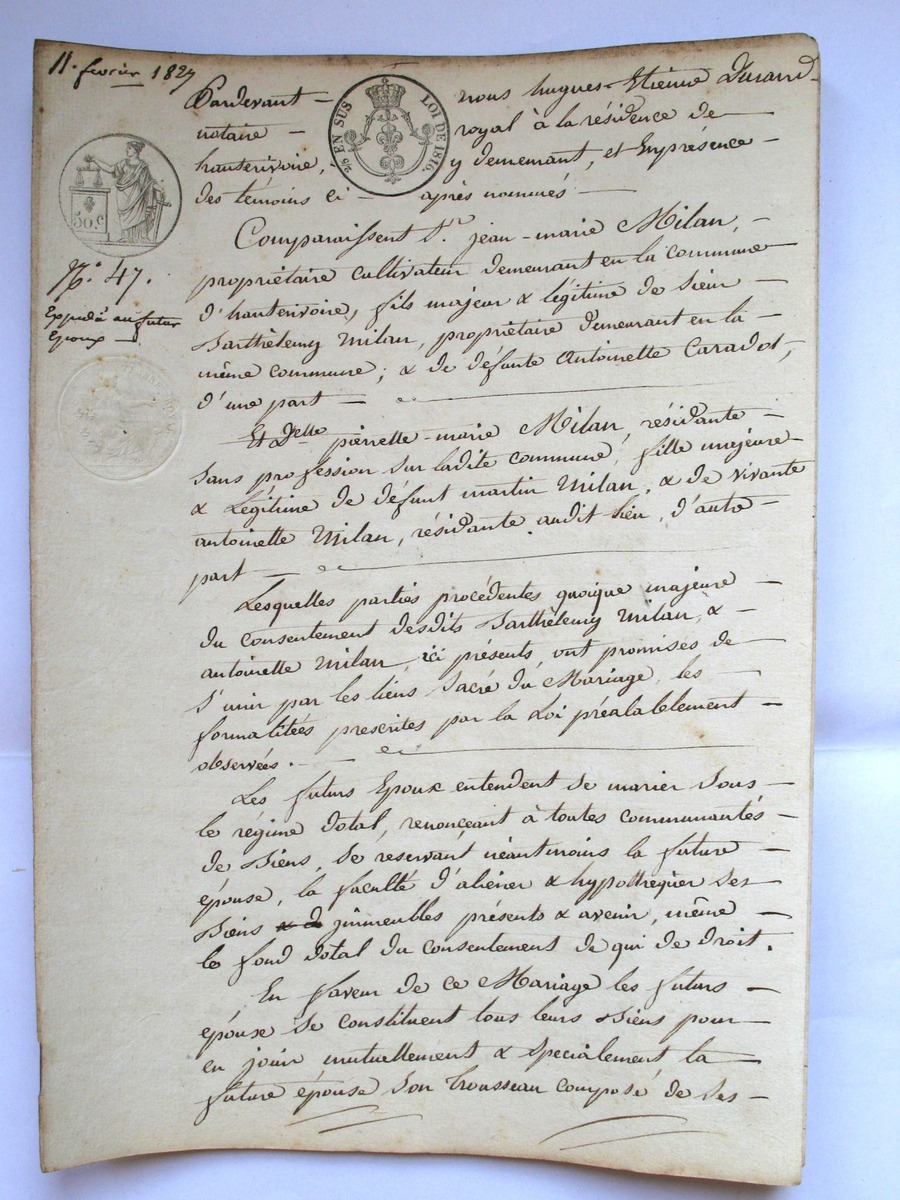 11. février 1827
Pardevant — nous hugues-Etienne Durand
notaire — royal à la résidence de
hauterivoire, y demeurant, et Enprésence
des témoins ci — après nommés
2/5 EN SUS LOI DE 1816.
50 c
N.° 47.
Expédié au futur
Epoux
Comparaissent S.r jean-marie Milan,
propriétaire cultivateur demeurant en la commune
d'hauterivoire, fils majeur & légitime de sieur
Barthèlemy Milan, propriétaire demeurant en la
même commune; & de défunte Antoinette Caradot,
d'une part
Et Delle pierrette-marie Milan, résidante
sans profession sur ladite commune, fille majeure
& Légitime de défunt martin Milan, & de vivante
antoinette Milan, résidante audit lieu, d'autre
part
Lesquelles parties procédentes quoique majeure
du consentement desdits Barthèlemy Milan, &
antoinette Milan, ici présents ont promises de
s'unir par les liens Sacré du Mariage, les
formalitées prescrites par la Loi préalablement
observées.
Les futurs Epoux entendent se marier sous
le régime Dotal, renonçant à toutes communautés
de Biens, se réservant néantmoins la future
épouse, la faculté d'aliéner & hypothéquer ses
Biens immeubles présents & avenir, même
le fond Dotal du consentement de qui de Droit.
En faveur de ce Mariage les futurs
épouse se constituent tous leurs Biens pour
en jouir mutuellement & specialement la
future épouse son trousseau composé de ses